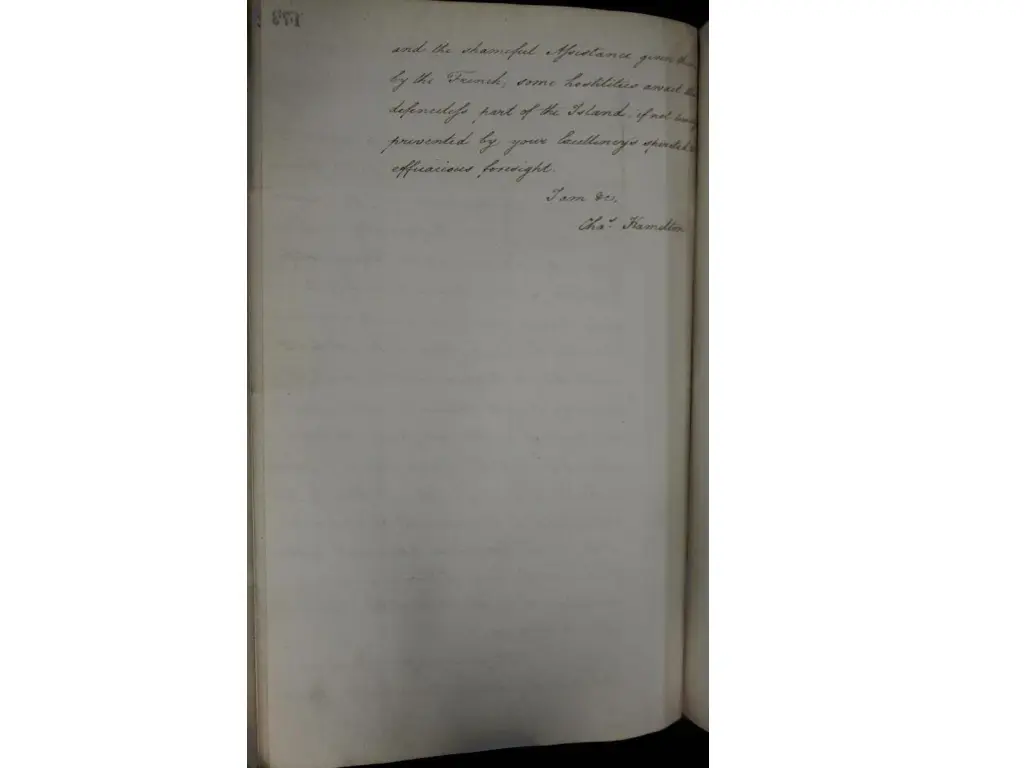 and the shameful Assistance given them
by the French, some hostilities await the
defenceless part of the Island, if not
prevented by your Excellency's spirited &
efficacious foresight.
I am &c,
Chas. Hamilton
173